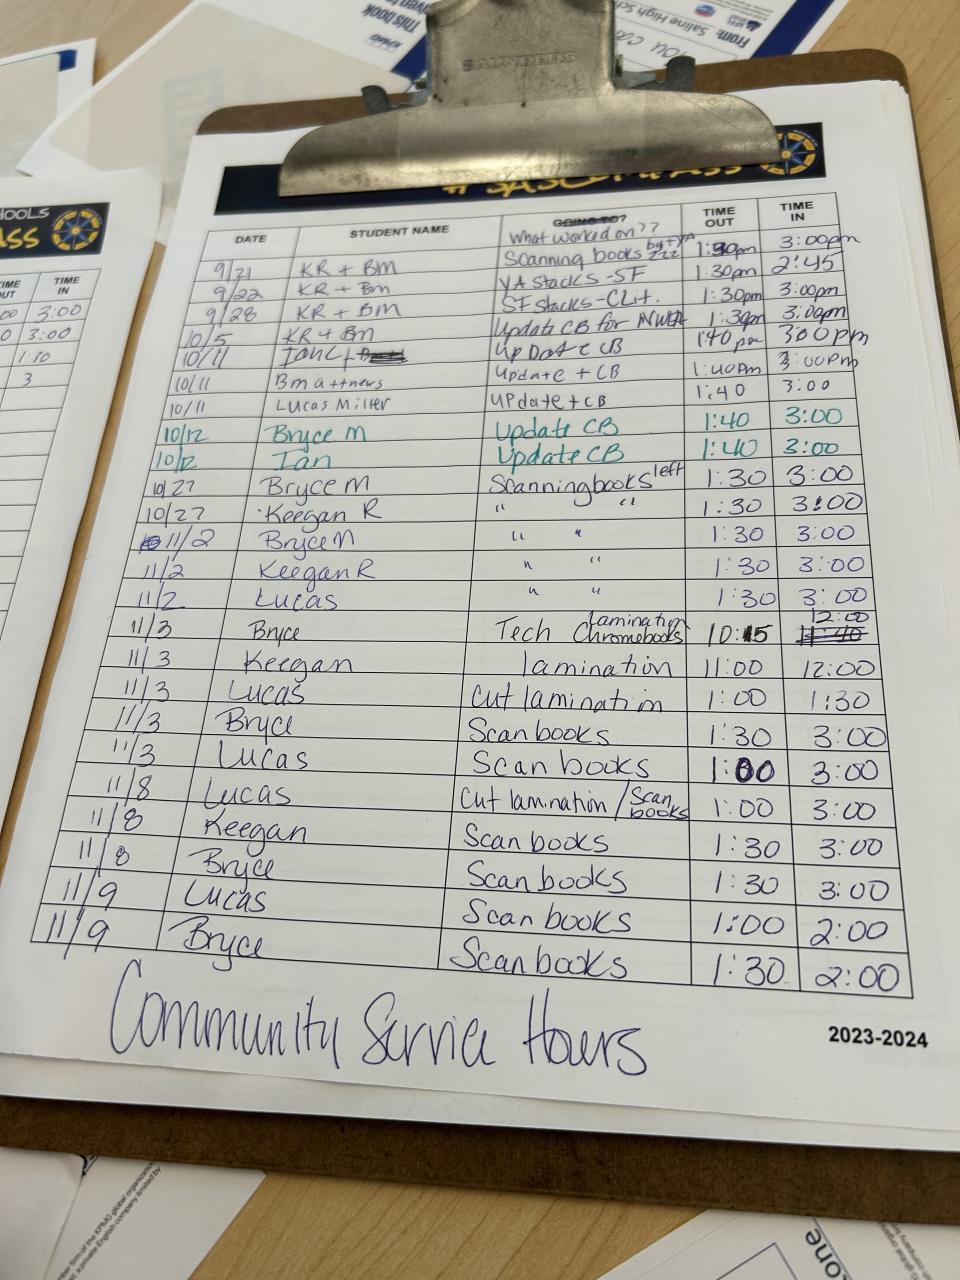 This book
KPMG
From: Saline High Sc
YOU CO
SAUNDERS
#SASCOMPASS
DATE STUDENT NAME GOING TO? What worked on?? TIME OUT TIME IN
9/21 KR + BM Scanning books by + YA ZZZ 1:30pm 3:00pm
9/22 KR + BM YA Stacks - SF 1:30pm 2:45
9/28 KR + BM SF Stacks - CLit. 1:30pm 3:00pm
10/5 KR + Bm Update CB for NWEA 1:30pm 3:00pm
10/11 Ian C + UpDate CB 1:40 pm 300pm
10/11 Bmattnews Update + CB 1:40pm 3:00pm
10/11 Lucas Miller UPdate + CB 1:40 3:00
10/12 Bryce M Update CB 1:40 3:00
10/12 Ian Update CB 1:40 3:00
10/27 Bryce M Scanning books left 1:30 3:00
10/27 Keegan R " " 1:30 3:00
11/2 Bryce M " " 1:30 3:00
11/2 Keegan R " " 1:30 3:00
11/2 Lucas " " 1:30 3:00
11/3 Bryce Tech lamination Chromebooks 10:15 11:40 12:00
11/3 Keegan lamination 11:00 12:00
11/3 Lucas Cut lamination 1:00 1:30
11/3 Bryce Scan books 1:30 3:00
11/3 Lucas Scan books 1:00 3:00
11/8 Lucas Cut lamination / Scan books 1:00 3:00
11/8 Keegan Scan books 1:30 3:00
11/8 Bryce Scan books 1:30 3:00
11/9 Lucas Scan books 1:00 2:00
11/9 Bryce Scan books 1:30 2:00
Community Service Hours
2023-2024
HOOLS
ASS
TIME OUT TIME IN
00 3:00
0 3:00
1:30
3